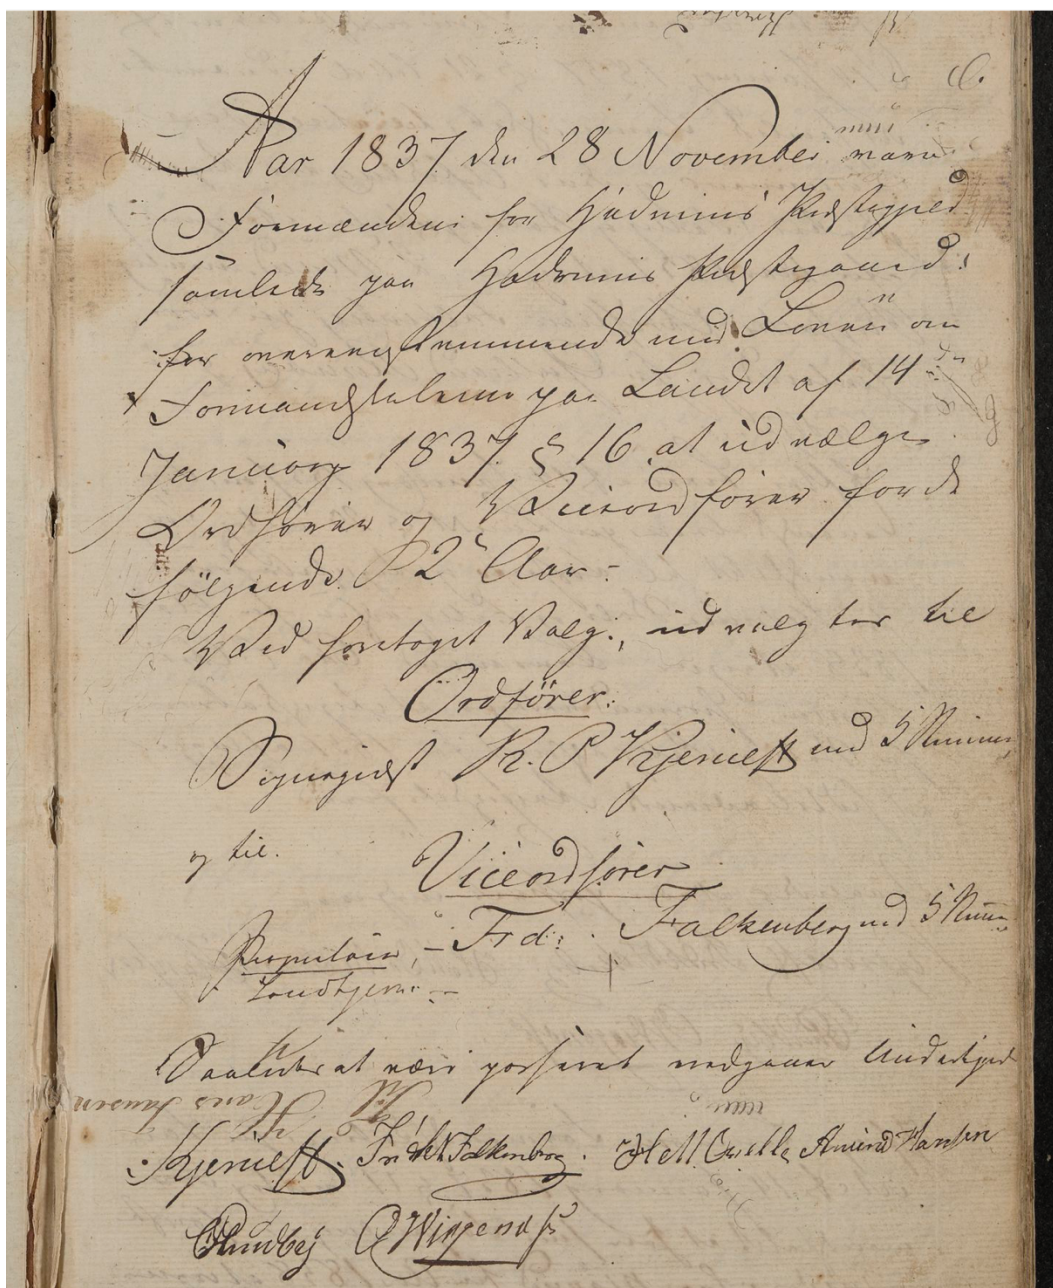 Aar 1837 den 28 November vare
Formændene for Hadrums Præstegjeld
samlede paa Hadrums Præstegaard
for overensstemmende med Loven om
Formandskaberne paa Landet af 14
Januarij 1837 § 16 at udvælge
Ordfører og Viceordfører for de
følgende 2 Aar:
Ved foretaget Valg, udvalgtes til
Ordfører:
Sogneprest R. P Kjerulff med 5 Stemmer
og til
Viceordfører
Proprietair, – Frd: Falkenberg med 5 Stemm
Saaledes at være passeret vedgaaer Undertegnede
Hans Hansen
Kjerulff. Fr Falkenberg. Amund Hansen